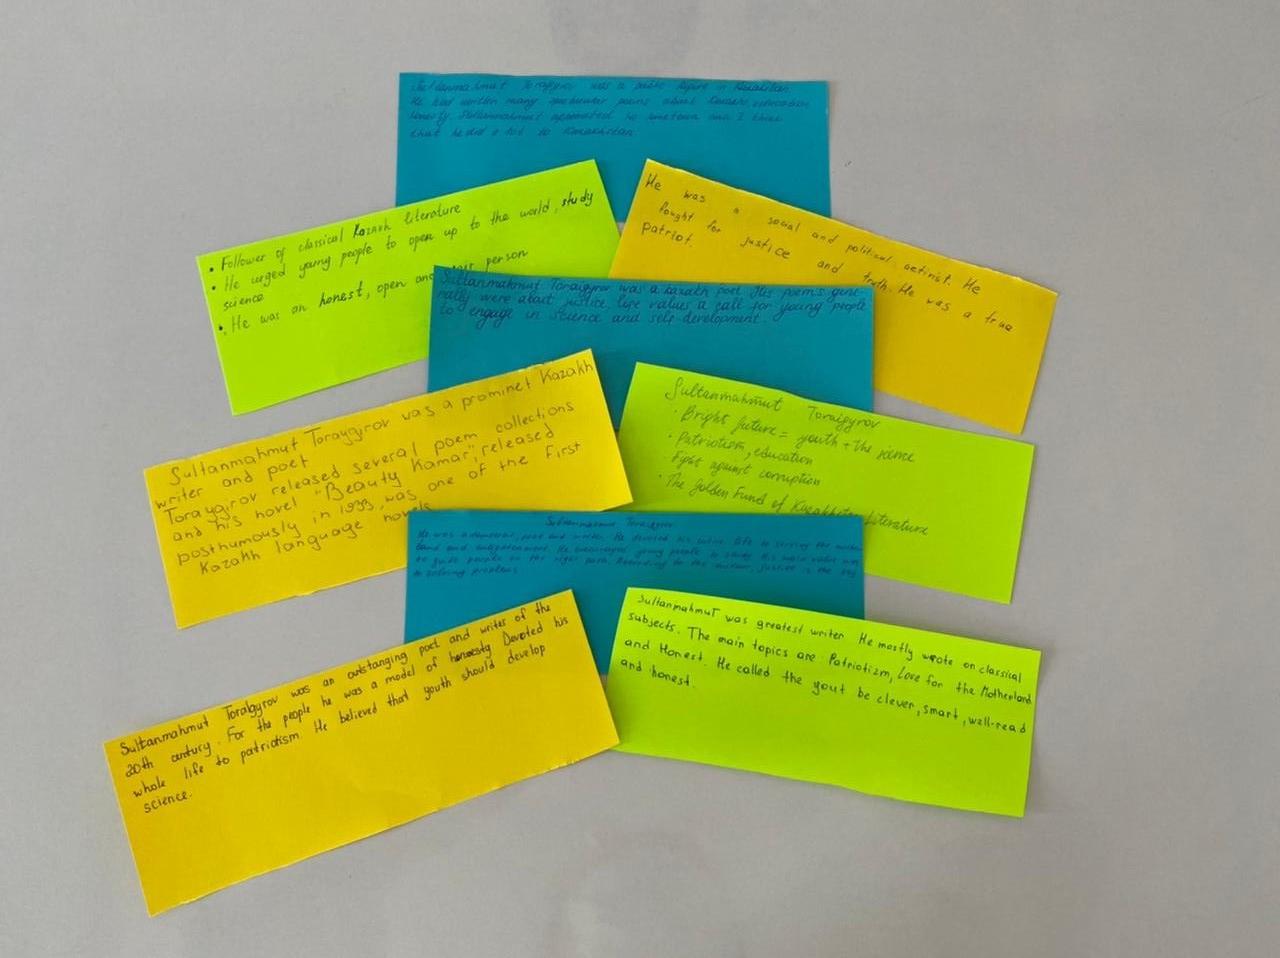 Sultanmahmut Toraigyrov was a public figure in Kazakhstan.
He had written many spectacular poems about Kazakhs, education
honesty. Sultanmahmut appreciated his and I think
that he did a lot to Kazakhstan
• Follower of classical Kazakh literature
• He urged young people to open up to the world, study
science
• He was an honest, open and person
He was a social and political activist. He
fought for justice and truth. He was a true
patriot.
Sultanmahmut Toraigyrov was a kazakh poet His poems gene-
rally were about justice, life values a call for young people
to engage in science and self-development.
Sultanmahmut Toraygirov was a prominet Kazakh
writer and poet
Toraygirov released several poem collections
and his novel "Beauty Kamar", released
posthumously in 1933, was one of the first
Kazakh language novels
Sultanmahmut Toraigyrov
• Bright future = youth + the science
• Patriotism, education
• Fight against corruption
• The Golden Fund of Kazakhstan Literature
Sultanmahmut Toraigyrov
He was a democrat, poet and writer. He devoted his entire life to serving the mother-
land and enlightenment. He encouraged young people to study. His main value was
to guide people on the right path. According to the author, justice is the key
to solving problems
Sultanmahmut Toraigyrov was an outstanging poet and writer of the
20th century. For the people he was a model of honesty Devoted his
whole life to patriotism He believed that youth should develop
science.
Sultanmahmut was greatest writer He mostly wrote on classical
subjects. The main topics are Patriotizm, Love for the Motherland
and Honest. He called the yout be clever, smart, well-read
and honest.